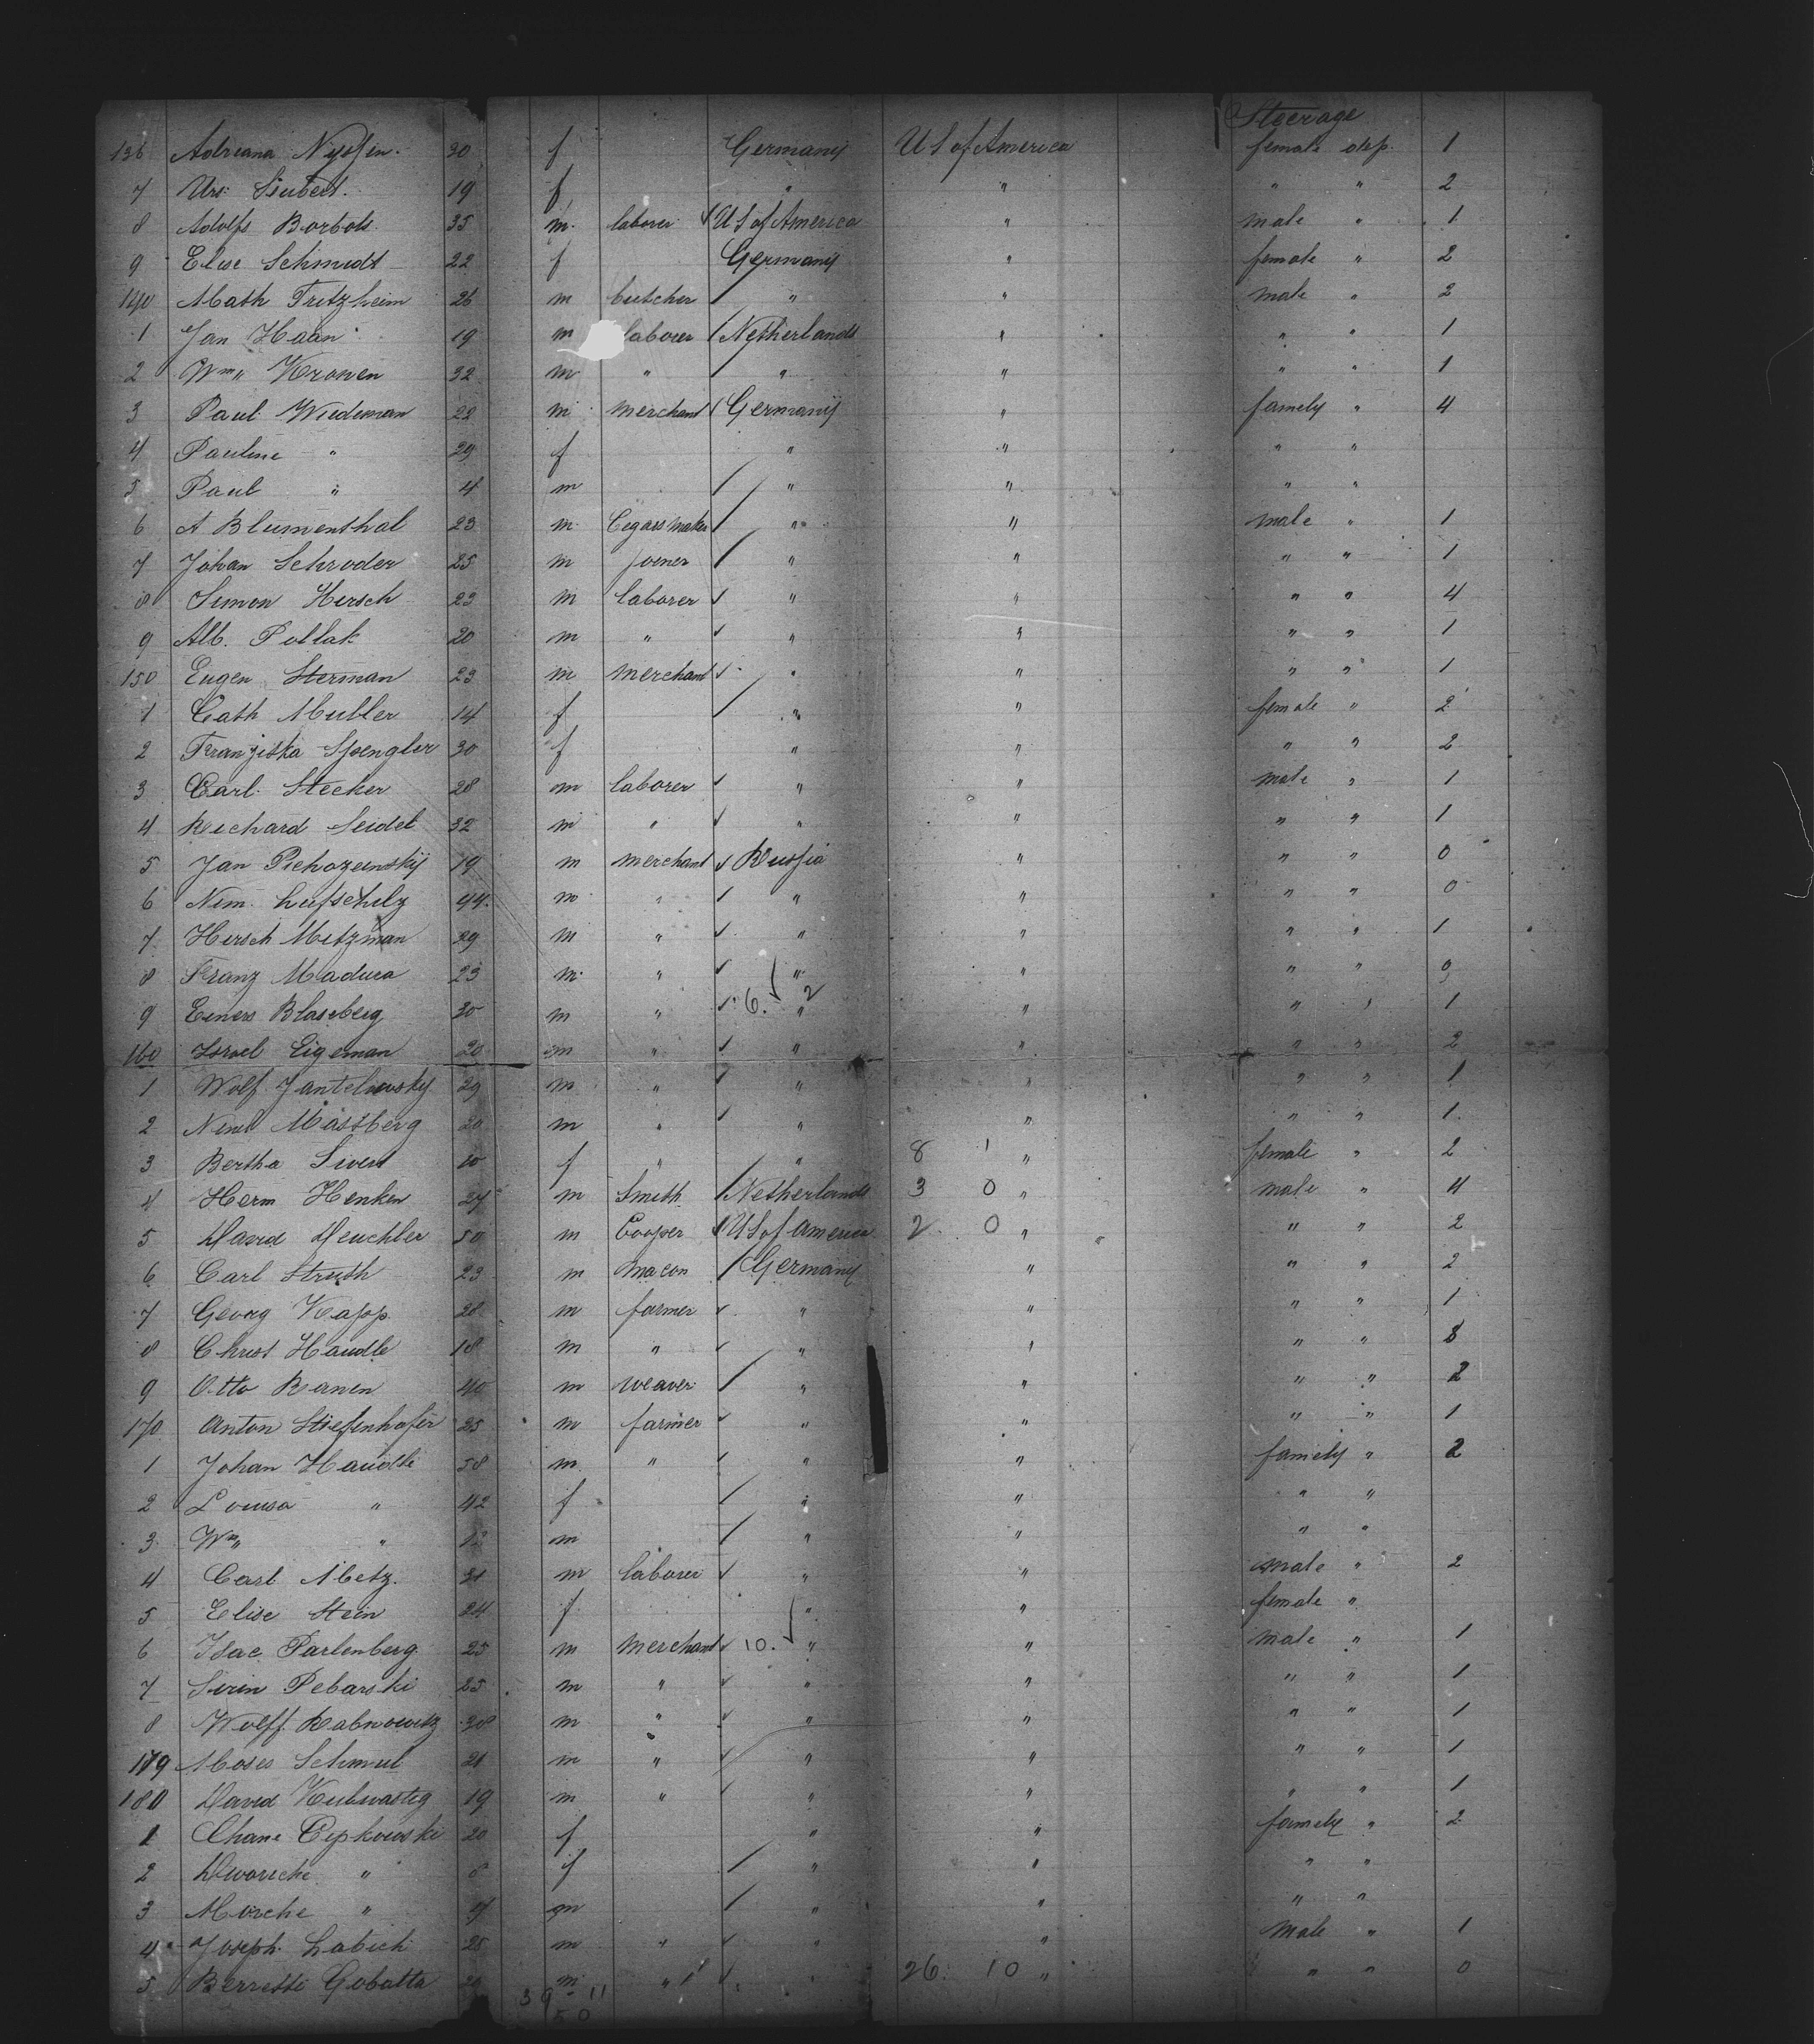 Steerage
136 Adreana Nyssen. 30 f Germany U S of America female dep. 1
7 Urs. Siubert. 19 f " " " " 2
8 Adolfs Borbols 35 m. laborer U S of America " male " 1
9 Elise Schmidt 22 f Germany " female " 2
140 Math Fritzheim 26 m butcher " " male " 2
1 Jan Haan 19 m laborer Netherlands " " " 1
2 Wm Kronen 32 m " " " " " 1
3 Paul Wiedeman 22 m merchant Germany " famely " 4
4 Pauline " 29 f " " " "
5 Paul " 4 m " " " "
6 A Blumenthal 23 m Cegars maker " " male " 1
7 Johan Schroder 25 m joener " " " " 1
8 Simon Hersch 23 m laborer " " " " 4
9 Alb. Pollak 20 m " " " " " 1
150 Eugen Sterman 23 m merchant " " " " 1
1 Cath Muller 14 f " " female " 2
2 Franziska Spengler 30 f " " " " 2
3 Carl Stecker 28 m laborer " " male " 1
4 Reichard Seidel 32 m " " " " " 1
5 Jan 19 m merchant Russia " " " 0
6 Nim. 44 m " " " " " 0
7 Hersch Metzman 29 m " " " " " 1
8 Franz Madura 23 m " " " " " 0
6. 2
9 Einers Blaseberg 20 m " " " " " 1
160 Israel Eigeman 20 m " " " " " 2
1 Wolf 29 m " " " " " 1
2 Mastberg 20 m " " " " " 1
3 Bertha f " " 8 1 " female " 2
4 Herm Henken 24 m Smith Netherlands 3 0 " male " 4
5 David Meuchler 50 m Cooper U S of America 2 0 " " " 2
6 Carl Struth 23 m macon Germany " " " 2
7 Georg Kapp 28 m farmer " " " " 1
8 Christ Haudle 18 m " " " " "
9 Otto Ranen 40 m weaver " " " " 2
170 Anton Stiefenhofer 25 m farmer " " " " 1
1 Johan Haudle 58 m " " " famely " 2
2 Louisa " 42 f " " " "
3 Wm " 12 m " " " "
4 Carl Metz. 21 m laborer " " male " 2
5 Elise Stein 24 f " " female "
6 Isac Parlenberg 25 m merchant 10. " " male " 1
7 Sirin Pebarski 25 m " " " " " 1
8 Wolff Rabnowitz 30 m " " " " " 1
179 Moses Schmul 21 m " " " " " 1
180 David 19 m " " " " " 1
1 Chane Cipkowski 20 f " " famely " 2
2 " f " " " "
3 Mosche " m " " " "
4 Joseph Labich 25 m " " " male " 1
5 Berretti Gobatta m " 26. 10 " " " 0
39 - 11
50